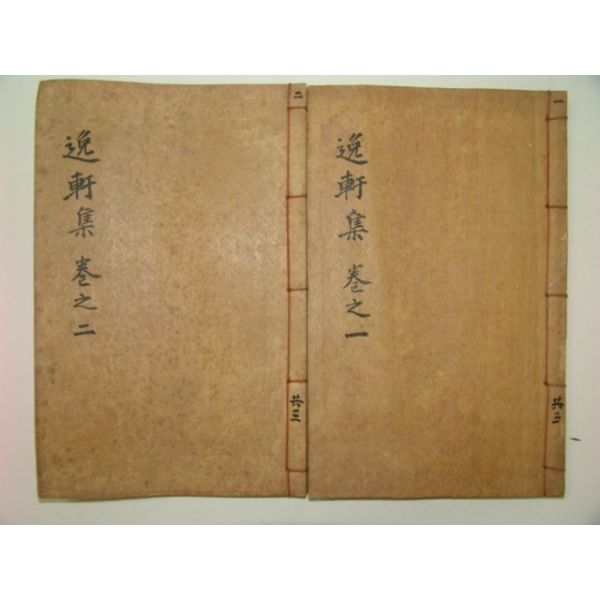 一
逸軒集 卷之一
共二
二
逸軒集 卷之二
共三